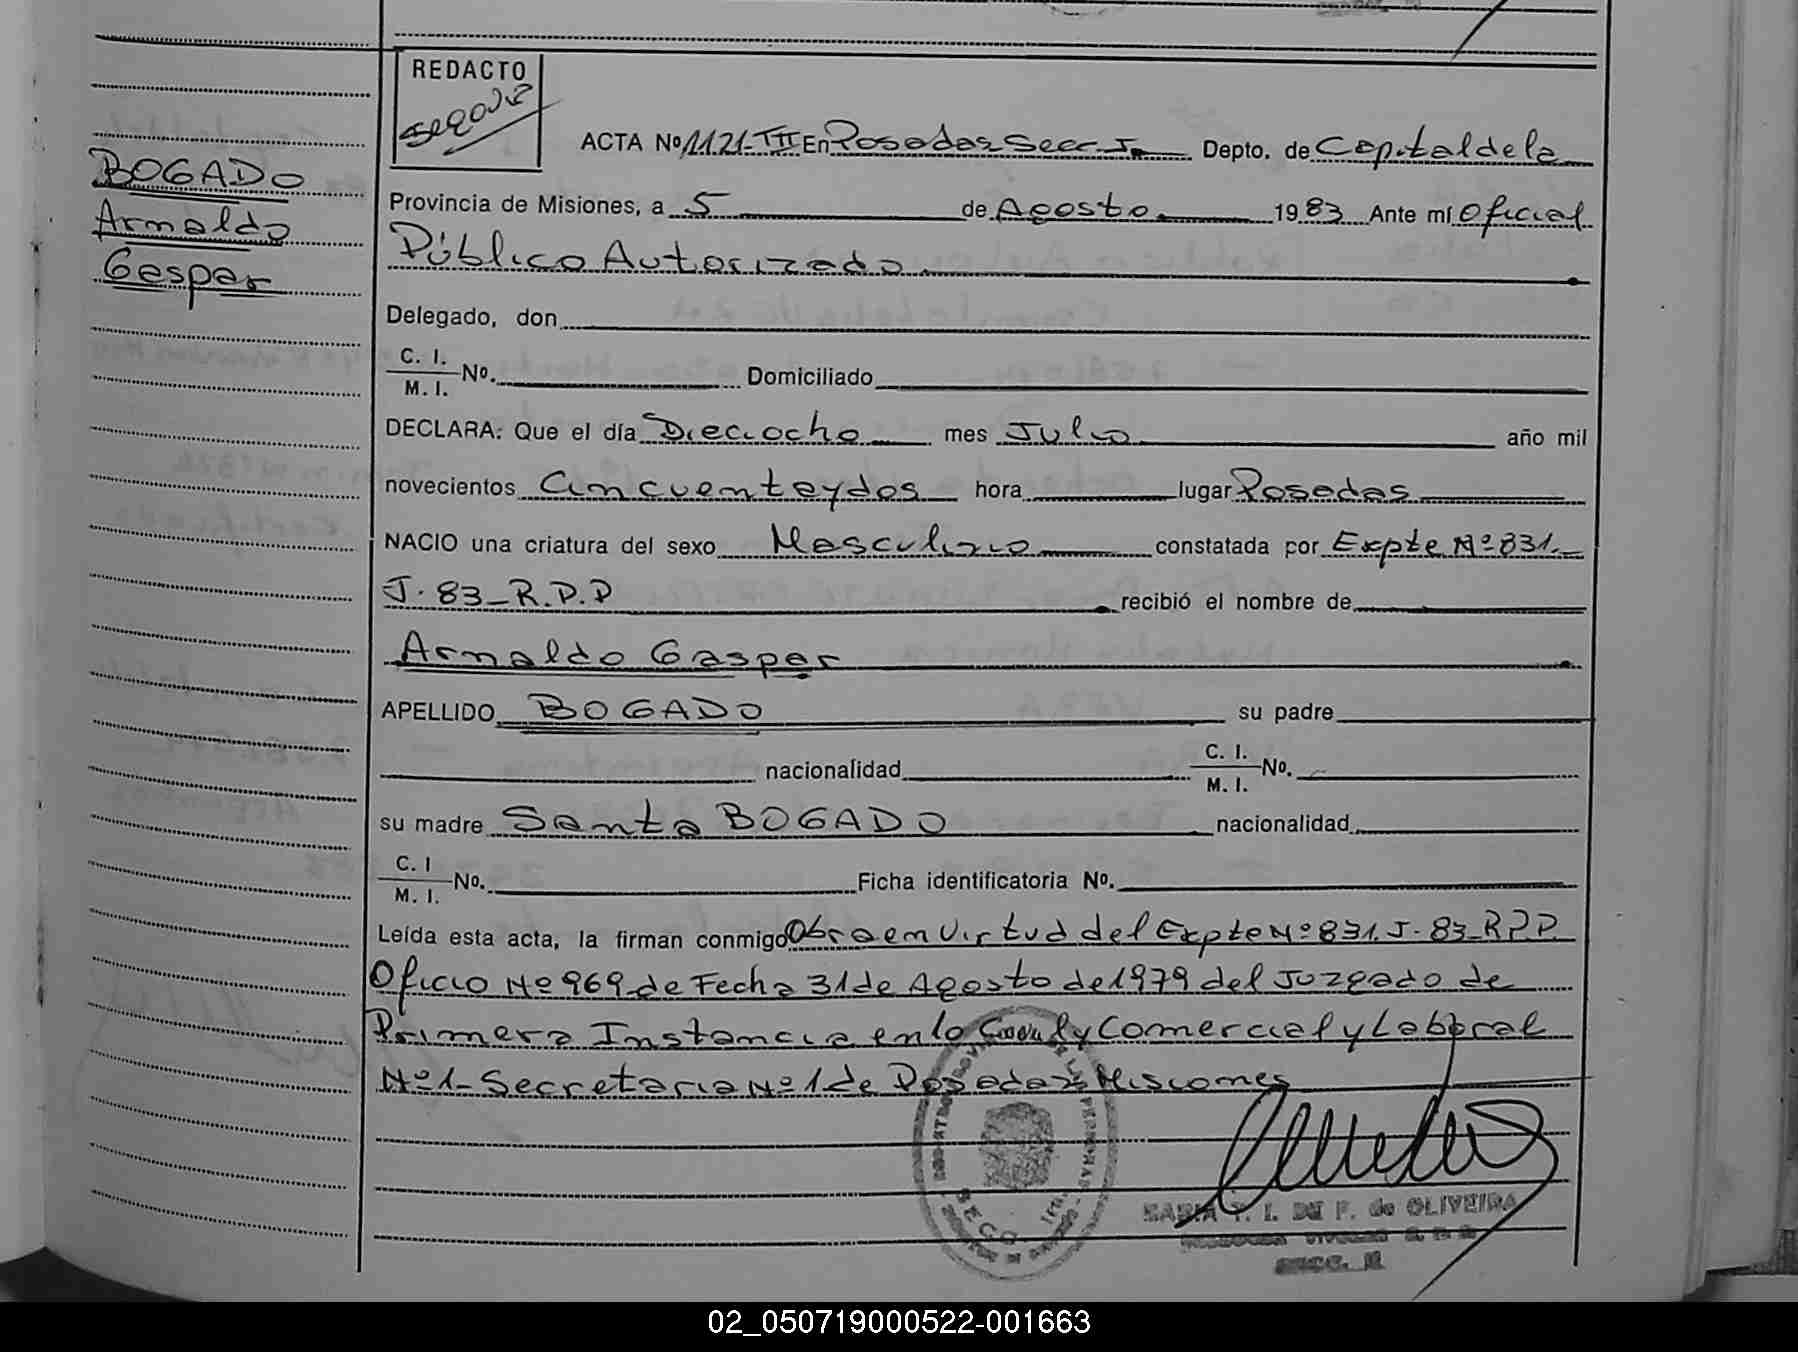 REDACTO
ACTA Nº 1121-TII En Posadas Secc I. Depto. de Capital de la
BOGADO
Arnaldo
Gaspar
Provincia de Misiones, a 5 de Agosto 1983 Ante mí Oficial
Público Autorizado
Delegado, don
C. I.
M. I. Nº. Domiciliado
DECLARA: Que el día Dieciocho mes Julio año mil
novecientos Cincuentaydos hora lugar Posadas
NACIO una criatura del sexo Masculino constatada por Expte Nº 831.
J. 83-R.P.P recibió el nombre de
Arnaldo Gaspar
APELLIDO BOGADO su padre
nacionalidad C. I.
M. I. Nº.
su madre Santa BOGADO nacionalidad
C. I
M. I. Nº. Ficha identificatoria Nº.
Leída esta acta, la firman conmigo Obra en Virtud del Expte Nº 831. J. 83-R.P.P.
Oficio Nº 969 de Fecha 31 de Agosto de 1979 del Juzgado de
Primera Instancia en lo y Comercial y Laboral
Nº 1- Secretaria Nº 1 de Posadas Misiones
MARIA T. I. DE F. de OLIVEIRA
SECC. II
02_050719000522-001663